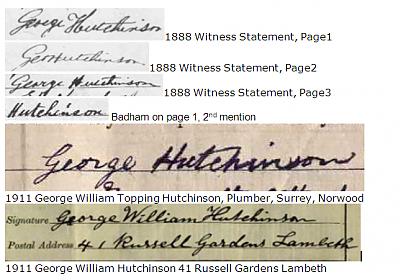 George Hutchinson 1888 Witness Statement, Page1
Geo Hutchinson 1888 Witness Statement, Page2
George Hutchinson 1888 Witness Statement, Page3
Hutchinson Badham on page 1, 2nd mention
George Hutchinson
1911 George William Topping Hutchinson, Plumber, Surrey, Norwood
Signature George William Hutchinson
Postal Address 41 Russell Gardens Lambeth
1911 George William Hutchinson 41 Russell Gardens Lambeth